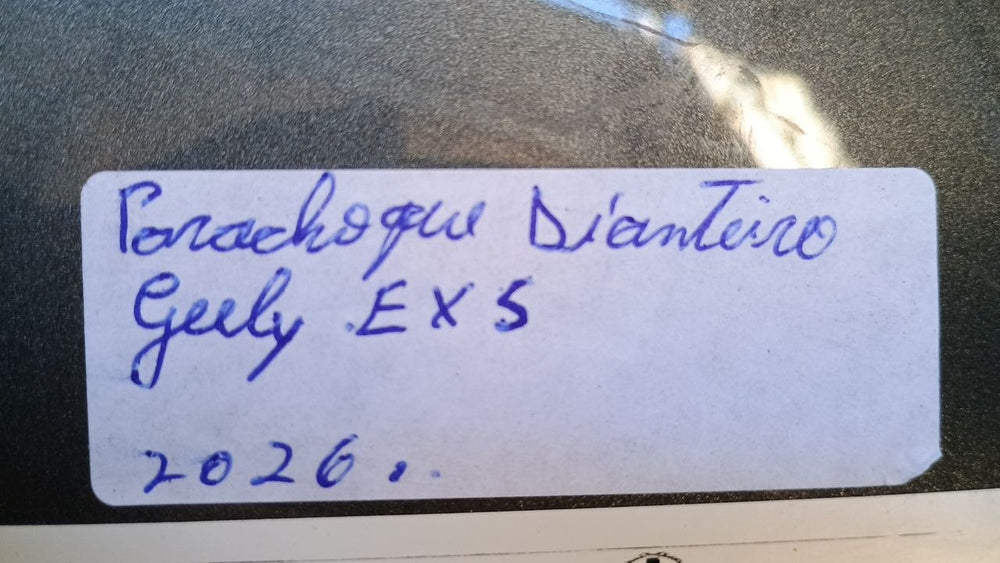 Parachoque Dianteiro
Geely EX5
2026..